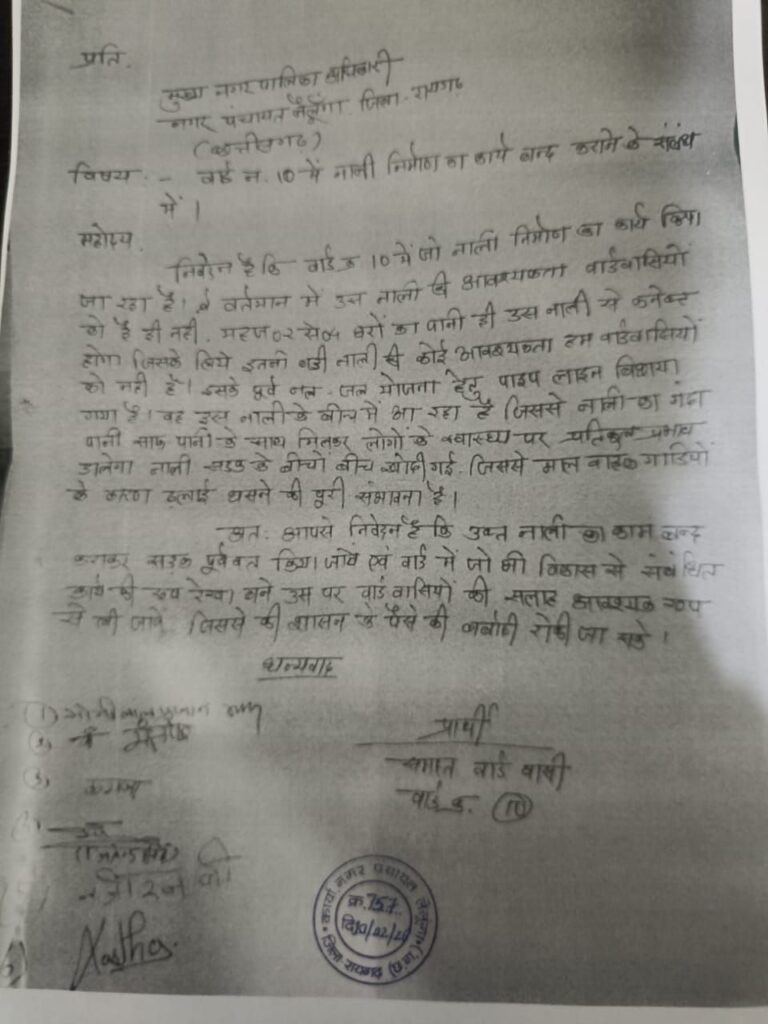 प्रति,
मुख्य नगर पालिका अधिकारी
नगर पंचायत लैलूंगा जिला - रायगढ़
(छत्तीसगढ़)
विषय :- वार्ड न. 10 में नाली निर्माण का कार्य बन्द कराने के संबंध
में ।
महोदय,
निवेदन है कि वार्ड क्र 10 में जो नाली निर्माण का कार्य किया
जा रहा है। वर्तमान में उस नाली की आवश्यकता वार्डवासियों
को है ही नही, महज 02 से 04 घरों का पानी ही उस नाली से कनेक्ट
होगा जिसके लिये इतनी बडी नाली की कोई आवश्यकता हम वार्डवासियों
को नही है। इसके पूर्व नल-जल योजना हेतु पाइप लाइन बिछाया
गया है। वह इस नाली के बीच में आ रहा है जिससे नाली का गंदा
पानी साफ पानी के साथ मिलकर लोगों के स्वास्थ्य पर प्रतिकूल प्रभाव
डालेगा नाली सडक के बीचों बीच खोदी गई, जिससे माल वाहक गाडियों
के कारण ढलाई धसने की पूरी संभावना है।
अतः आपसे निवेदन है कि उक्त नाली का काम बन्द
कराकर सडक पूर्ववत किया जावे एवं वार्ड में जो भी विकास से संबंधित
कार्य की रूप रेखा बने उस पर वार्ड वासियों की सलाह आवश्यक रूप
से ली जावे जिससे की शासन के पैसे की बर्बादी रोकी जा सके।
धन्यवाद
(1)
(2)
(3)
प्रार्थी
समस्त वार्ड वासी
वार्ड क्र. 10
कार्या. नगर पंचायत लैलूंगा
क्र. 757
जिला रायगढ़ (छ.ग.)